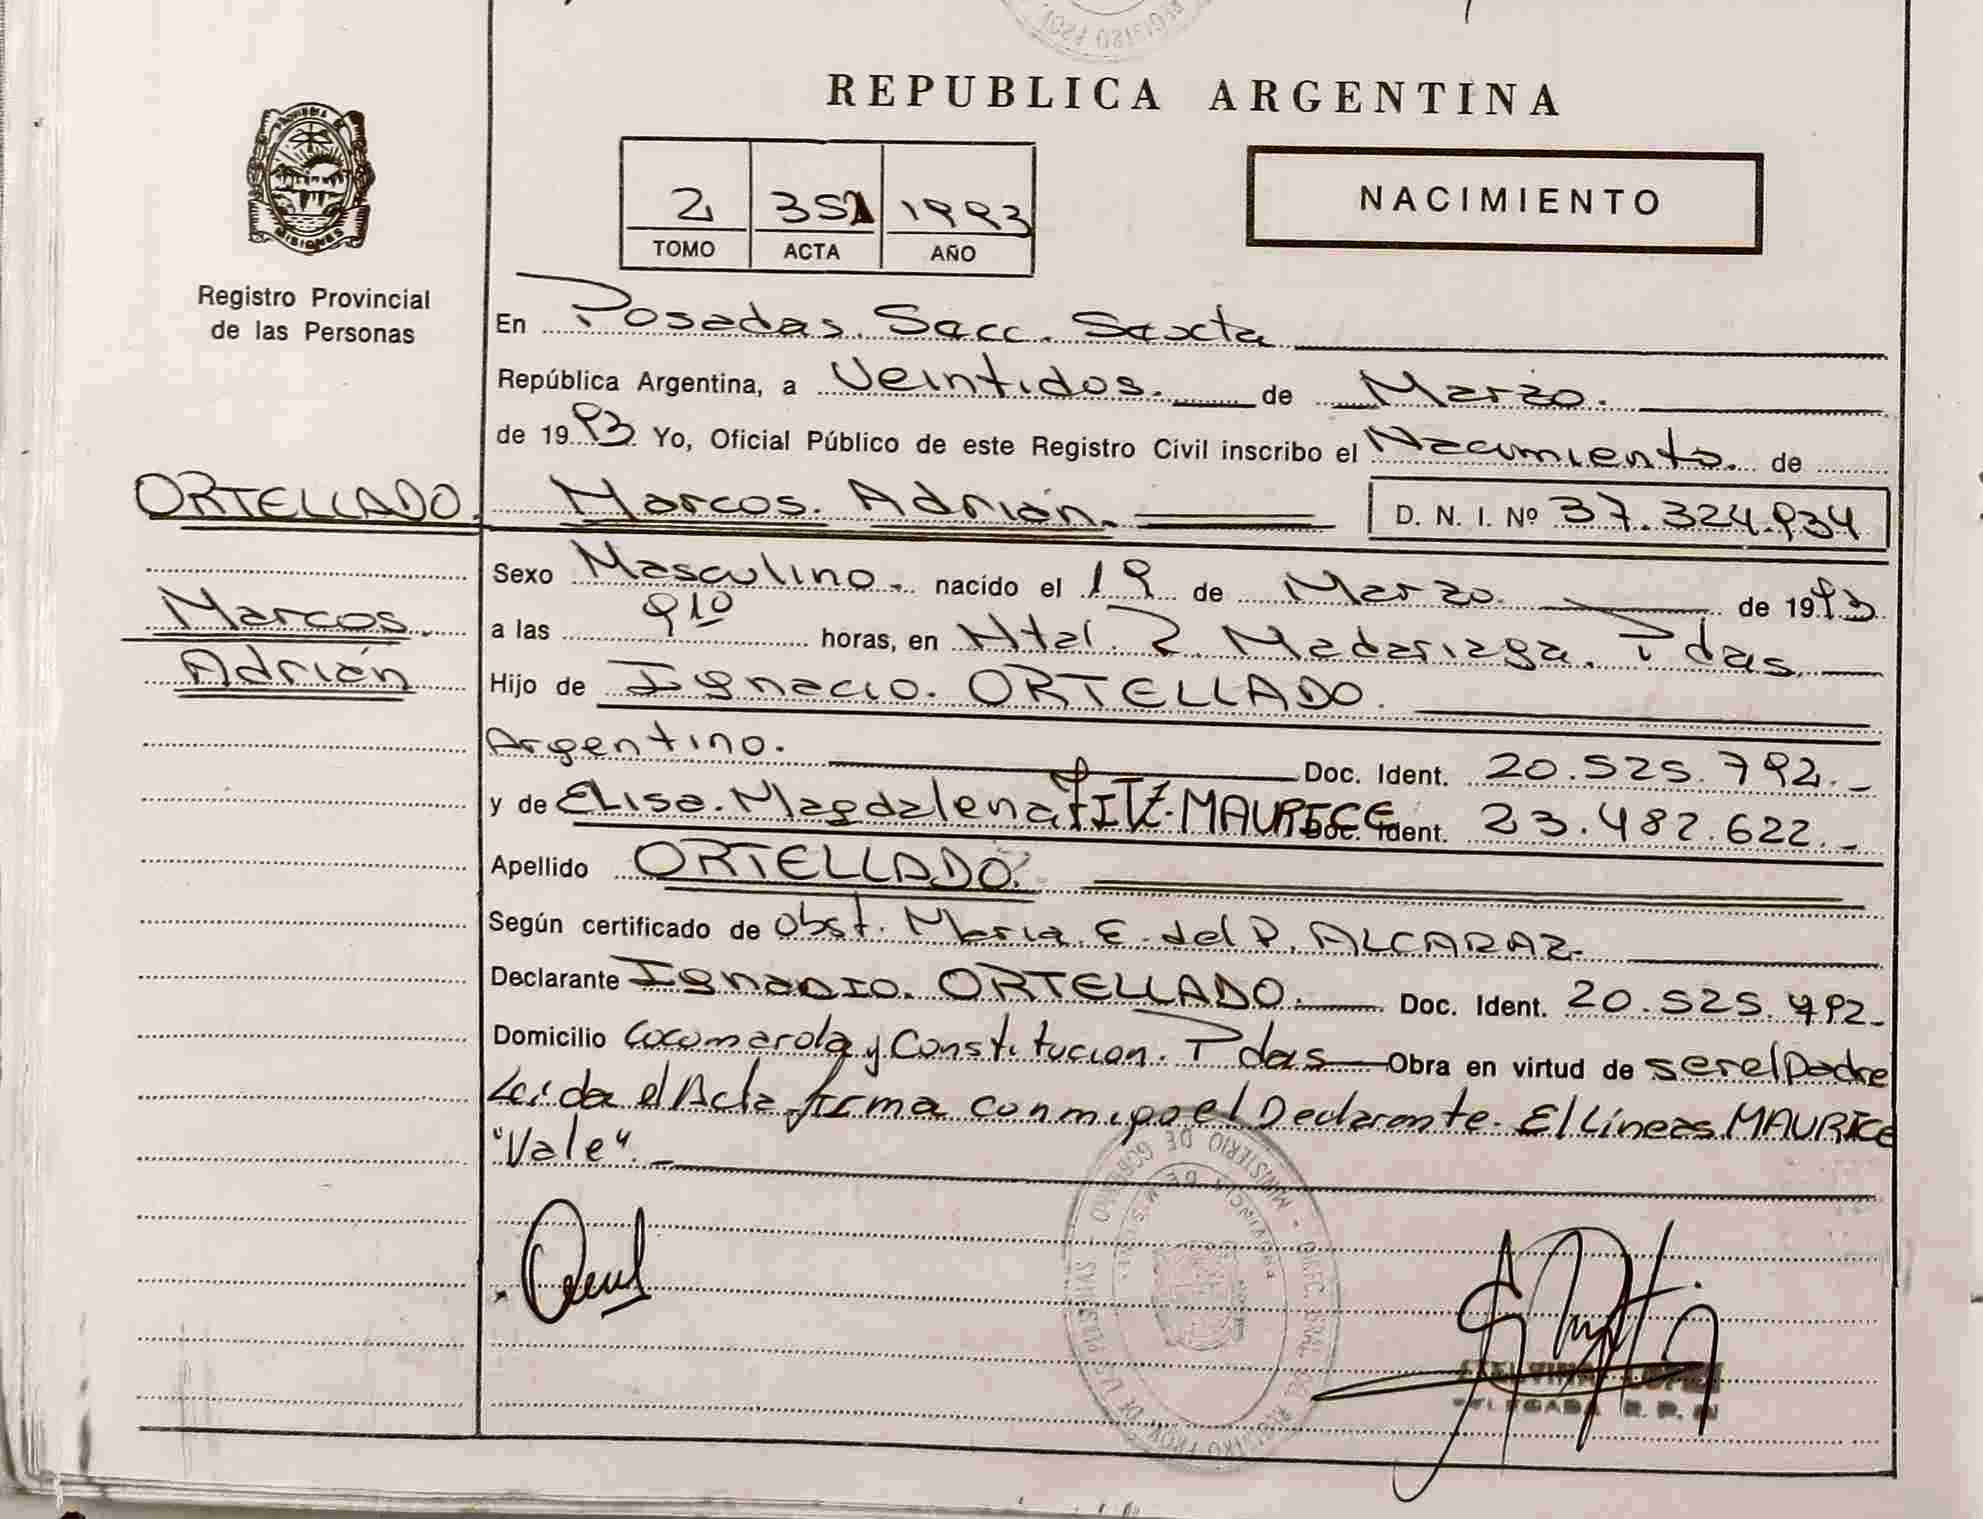 REPUBLICA ARGENTINA
NACIMIENTO
2 1993
TOMO ACTA AÑO
PROVINCIA
MISIONES
Registro Provincial
de las Personas
En Posadas. Secc. Sexta
República Argentina, a Veintidos. de Marzo.
de 1993. Yo, Oficial Público de este Registro Civil inscribo el Nacimiento. de
ORTELLADO. Marcos. Adrián. D. N. I. Nº 37.324.934
Marcos.
Adrián
Sexo Masculino. nacido el 19 de Marzo. de 1993
a las 9 10 horas, en Htal. R. Madariaga. Pdas.
Hijo de Ignacio. ORTELLADO.
Argentino. Doc. Ident. 20.525.792.-
y de Elisa. Magdalena FITZ-MAURICE Doc. Ident. 23.482.622.-
Apellido ORTELLADO.
Según certificado de Obst. Maria. E. del P. ALCARAZ.
Declarante Ignacio. ORTELLADO. Doc. Ident. 20.525.792.-
Domicilio Cocomarola y Constitucion. Pdas Obra en virtud de ser el padre
Leida el Acta firma conmigo el Declarante. E/Líneas MAURICE
"Vale". -
MINISTERIO DE GOBIERNO
PROVINCIA DE MISIONES
DELEGADA R. P. P.